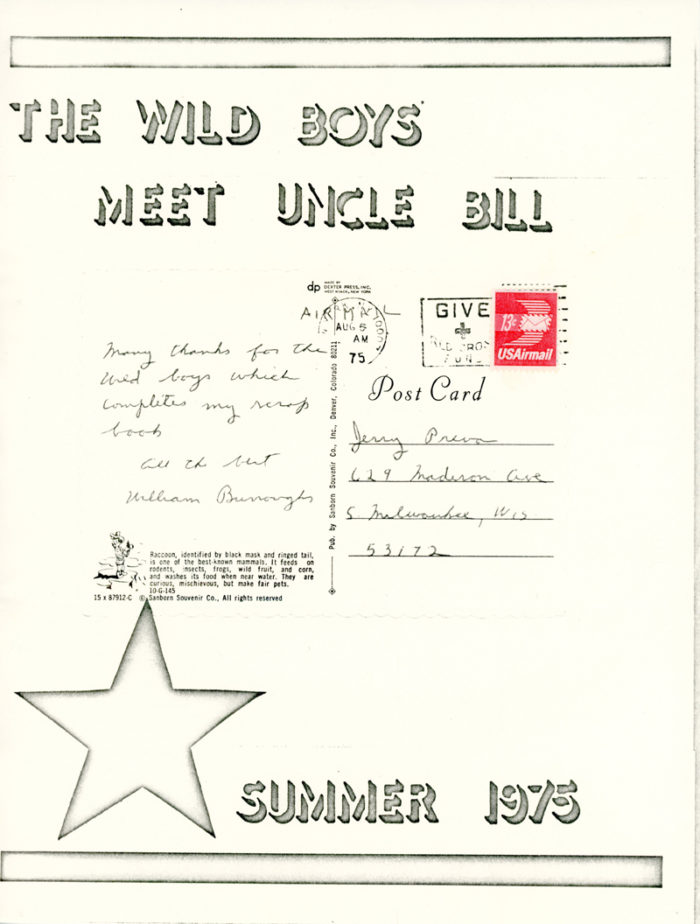 THE WILD BOYS
MEET UNCLE BILL
dp MADE BY
DEXTER PRESS, INC.
WEST NYACK, NEW YORK
AIR MAIL
AUG 5
AM
75
GIVE
FUND
13c
USAirmail
Post Card
Many thanks for the
Wild boys which
completes my scrap
book
all the best
William Burroughs
Pub. by Sanborn Souvenir Co., Inc., Denver, Colorado 80211
Jerry
629 Madison Ave
S Milwaukee, Wis
53172
Raccoon, identified by black mask and ringed tail,
is one of the best-known mammals. It feeds on
rodents, insects, frogs, wild fruit, and corn,
and washes its food when near water. They are
curious, mischievous, but make fair pets.
10-G-145
15 x 87912-C © Sanborn Souvenir Co., All rights reserved
SUMMER 1975